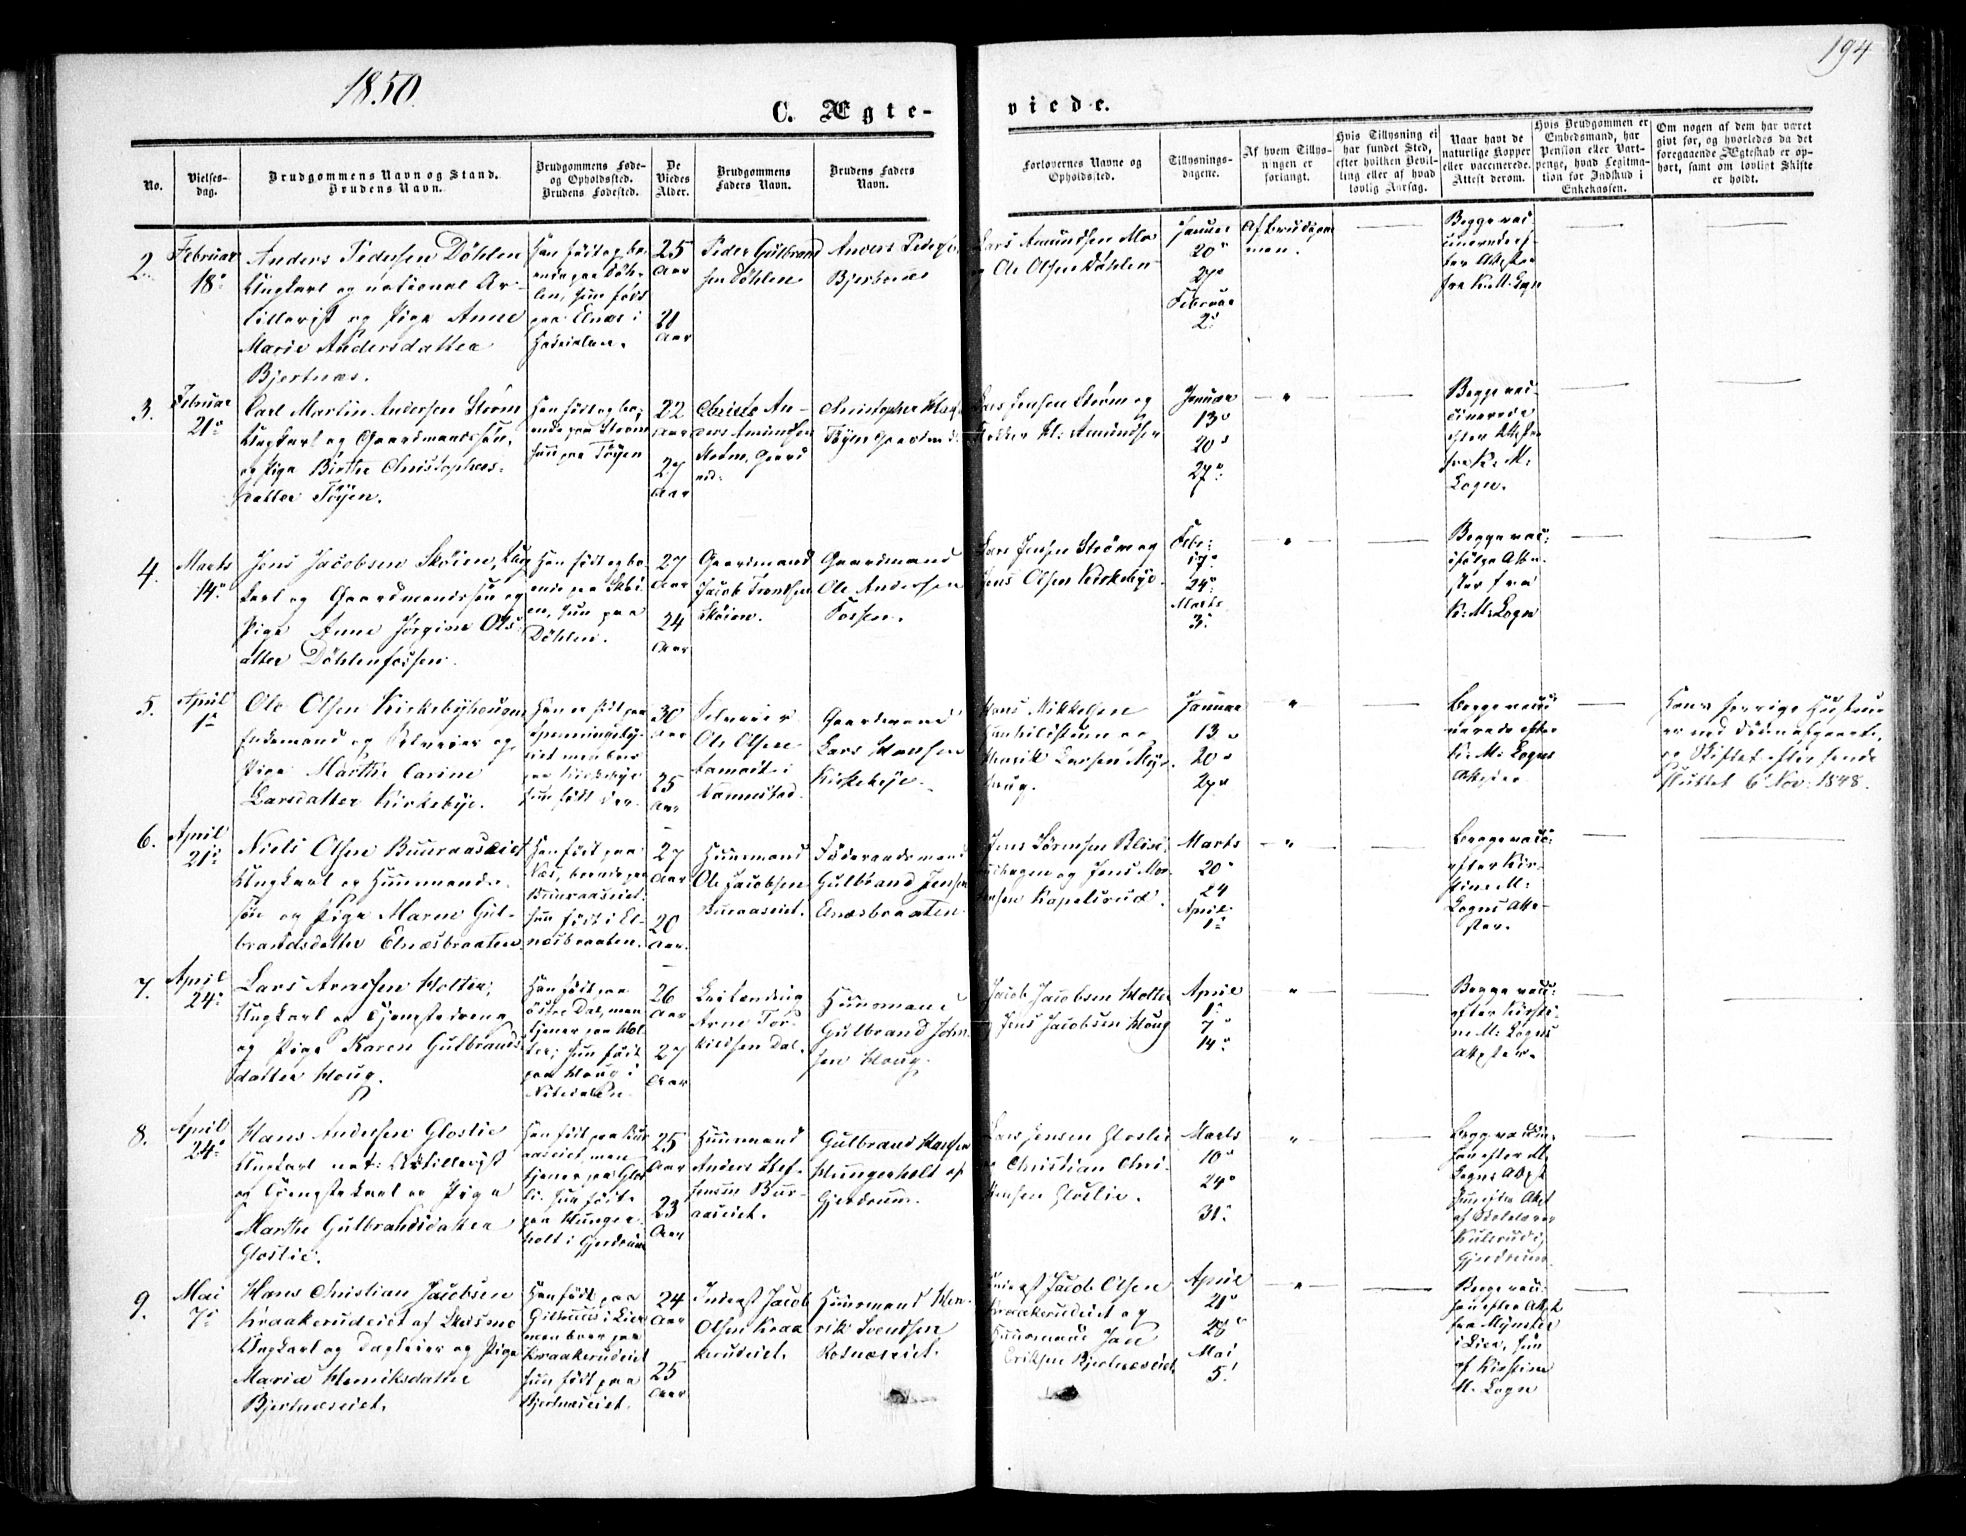 1850.
194
C. Ægte-
viede.
No.
Vielses-
dag.
Brudgommens Navn og Stand.
Brudens Navn.
Brudgommens Føde-
og Opholdssted.
Brudens Fødested.
De
Viedes
Alder.
Brudgommens
Faders Navn.
Brudens Faders
Navn.
Forlovernes Navne og
Opholdssted.
Tillysnings-
dagene.
Af hvem Tillys-
ningen er
forlangt.
Hvis Tillysning ei
har fundet Sted,
efter hvilken Bevil-
ling eller af hvad
lovlig Aarsag.
Naar havt de
naturlige Kopper
eller vaccinerede.
Attest derom.
Hvis Brudgommen er
Embedsmand, har
Pension eller Vart-
penge, hvad Legitima-
tion for Indskud i
Enkekassen.
Om nogen af dem har været
givt før, og hvorledes da det
foregaaende Ægteskab er op-
hørt, samt om lovligt Skifte
er holdt.
2.
Februar
18
Anders Pedersen Döhlen
Ungkarl og national Ar-
tillerist og Pige Anne
Marie Andersdatter
Bjertnæs.
Han født og bo-
ende paa Döh-
len, hun født
paa Elnæs i
25
Aar
21
Aar
Peder Gulbrand
sen Döhlen
Anders Peders
Bjertnæs
Lars Amundsen Mo
og Ole Olsen Döhlen
Januar
20
27
Februar
2
Af Brudgom
men.
Begge vac
cinerede ef-
ter Attester
fra K. M. Logn
3.
Februar
21
Carl Martin Andersen Strøm
Ungkarl og Gaardmandssøn,
og Pige Birthe Christophers-
datter Töyen.
Han født og bo-
ende paa Strøm
hun paa Töyen
22
Aar
27
Aar
Anders Amundsen
Strøm, Gaard
md:
Christopher
Töyen Gaardmd:
Lars Jensen Strøm og
Amundsen
Januar
13
20
27
"
Begge vac-
cinerede
efter Attester
fra K. M.
Logn.
4.
Marts
14
Jens Jacobsen Skøien, Ung
karl og Gaardmandssøn og
Pige Anne Jørgine Ols-
datter Döhlenfossen.
Han født og bo-
ende paa Skøi-
en, hun paa
Döhlen.
27
Aar
24
Aar
Gaardmand
Jacob Trondsen
Skøien.
Gaardmand
Ole Andersen
Fossen.
Lars Jensen Strøm og
Jens Olsen Kirkebye.
Febr:
17
24
Marts
3
"
Begge vac:
ifølge Atte-
ster fra
K: M: Logn
5.
April
1
Ole Olsen Kirkebyhougen
Enkemand og Selveier og
Pige Marthe Carine
Larsdatter Kirkebye.
Han er født paa
eiet men boer
paa Kirkebye
hun født der.
30
Aar
25
Aar
Selveier
Ole Olsen
Gaardmand
Lars Hansen
Kirkebye.
Hans Mikkelsen
og
Henrik Larsen Myr-
haug.
Januar
13
20
27
"
Begge vacci
nerede efter
K: M: Logns
Attester
Hans forrige Hustrue
er ved Döden afgaaet,
og Skiftet efter hende
sluttet 6 Nov: 1848.
6.
April
21
Niels Olsen Buuraaseiet
Ungkarl og Huusmands-
søn og Pige Maren Gul-
brandsdatter Elnæsbraaten.
Han født paa
Aas, boende paa
Buuraaseiet.
Hun født i El-
næsbraaten.
27
Aar
20
Aar
Huusmand
Ole Jacobsen
Buuraaseiet.
Föderaadsmand
Gulbrand Jensen
Elnæsbraaten
Jens Sørensen
hagen og Jens Mor-
tensen Kapelsrud.
Marts
20
24
April
1
"
Begge vacc:
efter Kir-
stine M:
Logns Atte-
ster.
7.
April
24
Lars Arnesen Holter,
Ungkarl og Tjenestedreng
og Pige Karen Gulbrands
datter Houg.
Han født paa
Östre Dal, men
tjener paa Hol-
ter; hun født
paa Houg i
Nitedalen.
26
Aar
27
Aar
Leilænding
Arne Tor-
kildsen Dal.
Huusmand
Gulbrand John
sen Houg.
Jacob Jacobsen Holter
og Jens Jacobsen Houg
April
1
7
14
"
Begge vacc:
efter Kirsti-
ne M: Logns
Attester.
8.
April
24
Hans Andersen Gloslie
Ungkarl nat: Artillerist
og Tjenestekarl og Pige
Marthe Gulbrandsdatter
Gloslie.
Han født paa Bur
aaseiet, men
tjener paa Glos
lie. Hun født
paa Hunger-
holt i Gjerdrum
25
Aar
23
Aar
Huusmand
Anders
Bur-
aaseiet.
Gulbrand Hansen
Hungerholt af
Gjerdrum.
Lars Jensen Gloslie
og Christian Chri-
stensen Gloslie.
Marts
10
24
31
"
Logns Attest
Gjerdrum.
9.
Mai
7
Hans Christian Jacobsen
Kraakerudeiet af Skedsmo
Ungkarl og Dagleier og Pige
Maria Henriksdatter
Bjertnæseiet.
Han født paa
i Lier
men boer paa
Kraakerudeiet
hun født paa
Bjertnæseiet.
24
Aar
25
Aar
Inderst Jacob
Olsen Kraa
kerudeiet.
Huusmand Hen
rik Svendsen
Rotnæseiet.
Inderst Jacob Olsen
Kraakerudeiet og
Huusmand Jan
Eriksen Bjertnæseiet,
April
21
28
Mai
5
"
Begge vac:
han efter Att.
fra Mynster
i Lier, hun
af Kirstine
M. Logn